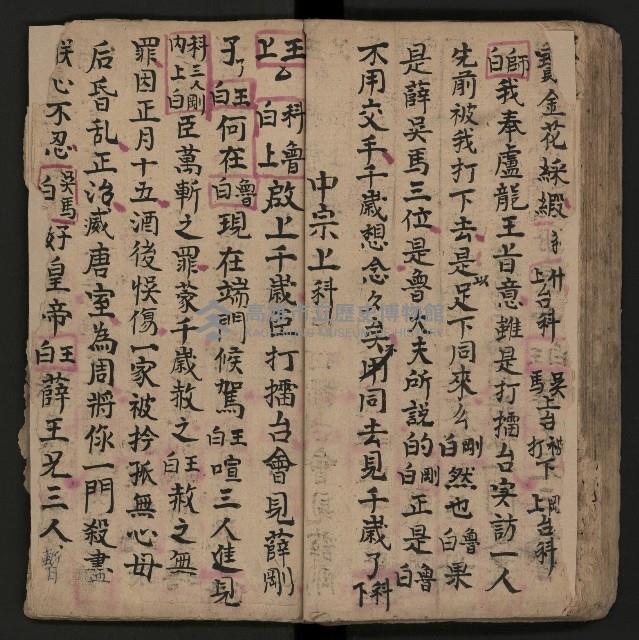 金花綵緞 上台科 白王 吳馬上台打下 上台科
白師我奉盧龍王旨意雖是打擂台实訪一人
先前被我打下去是以足下同來么白剛然也白魯果
是薛吳馬三位是魯大夫所説的白剛正是白魯
不用交手千歳想念々矣同去見千歳了下科
中宗上科
上王 白科上魯啟上千歳臣打擂台會見薛剛
子了白王何在白魯現在端門候駕白王喧三人進見
科三人剛内上白臣萬斬之罪蒙千歳赦之白王赦之無
罪因正月十五酒後悞傷一家被拎孤無心母
后昏乱正治滅唐室為周將你一門殺盡
朕心不忍白吳馬好皇帝白王薛王兄三人
高雄市立歷史博物館
KAOHSIUNG MUSEUM OF HISTORY